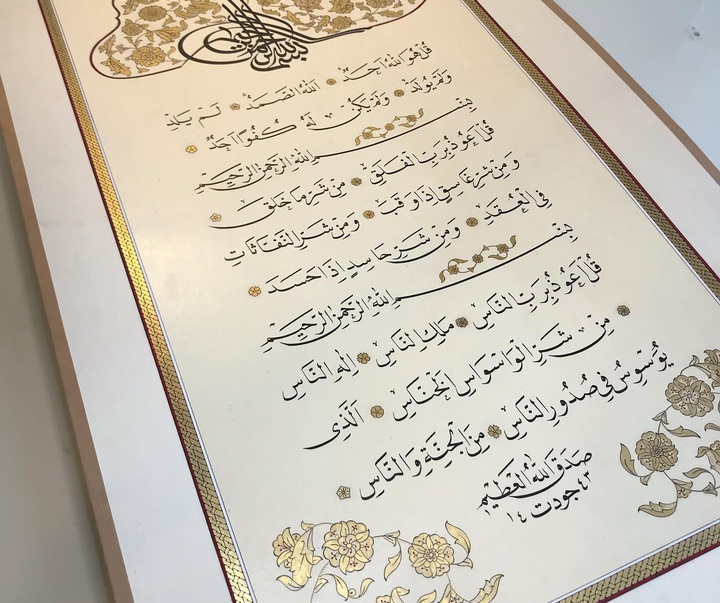 بسم الله الرحمن الرحيم
قُلْ هُوَ اللهُ اَحَدٌ اَللهُ الصَّمَدُ لَمْ يَلِدْ
وَلَمْ يُولَدْ وَلَمْ يَكُنْ لَهُ كُفُوًا اَحَدٌ
بِسْمِ اللهِ الرَّحْمٰنِ الرَّحِيْمِ
قُلْ اَعُوذُ بِرَبِّ الْفَلَقِ مِنْ شَرِّ مَا خَلَقَ
وَمِنْ شَرِّ غَاسِقٍ اِذَا وَقَبَ وَمِنْ شَرِّ النَّفَّاثَاتِ
فِى الْعُقَدِ وَمِنْ شَرِّ حَاسِدٍ اِذَا حَسَدَ
بِسْمِ اللهِ الرَّحْمٰنِ الرَّحِيْمِ
قُلْ اَعُوذُ بِرَبِّ النَّاسِ مَلِكِ النَّاسِ اِلٰهِ النَّاسِ
مِنْ شَرِّ الْوَسْوَاسِ الْخَنَّاسِ اَلَّذِى
يُوَسْوِسُ فِى صُدُورِ النَّاسِ مِنَ الْجِنَّةِ وَالنَّاسِ
صَدَقَ اللهُ الْعَظِيْمُ
جودت ١٤٤٣